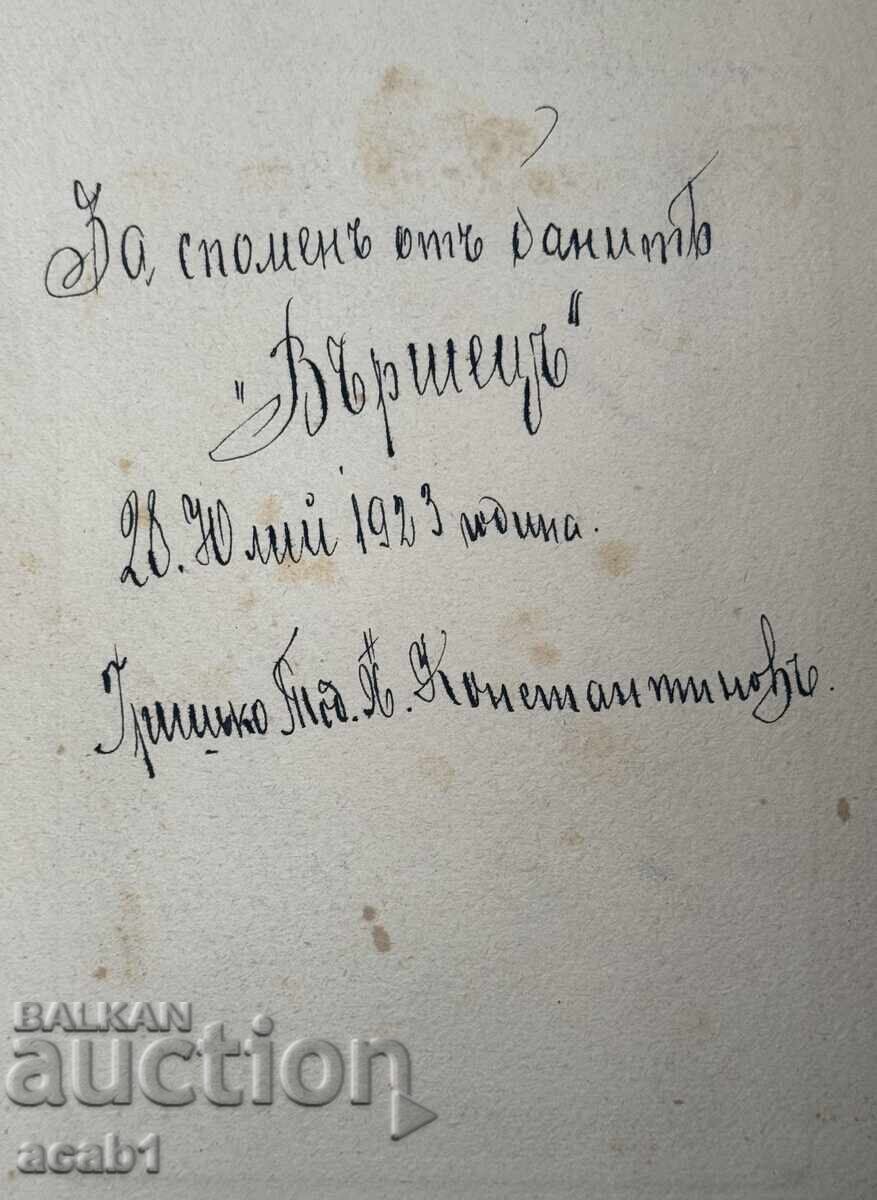 За споменъ отъ банитѣ
„Вършецъ“
28. Юлий 1923 година.
Гришко Тод. Х. Константиновъ.
BALKAN
auction
acab1